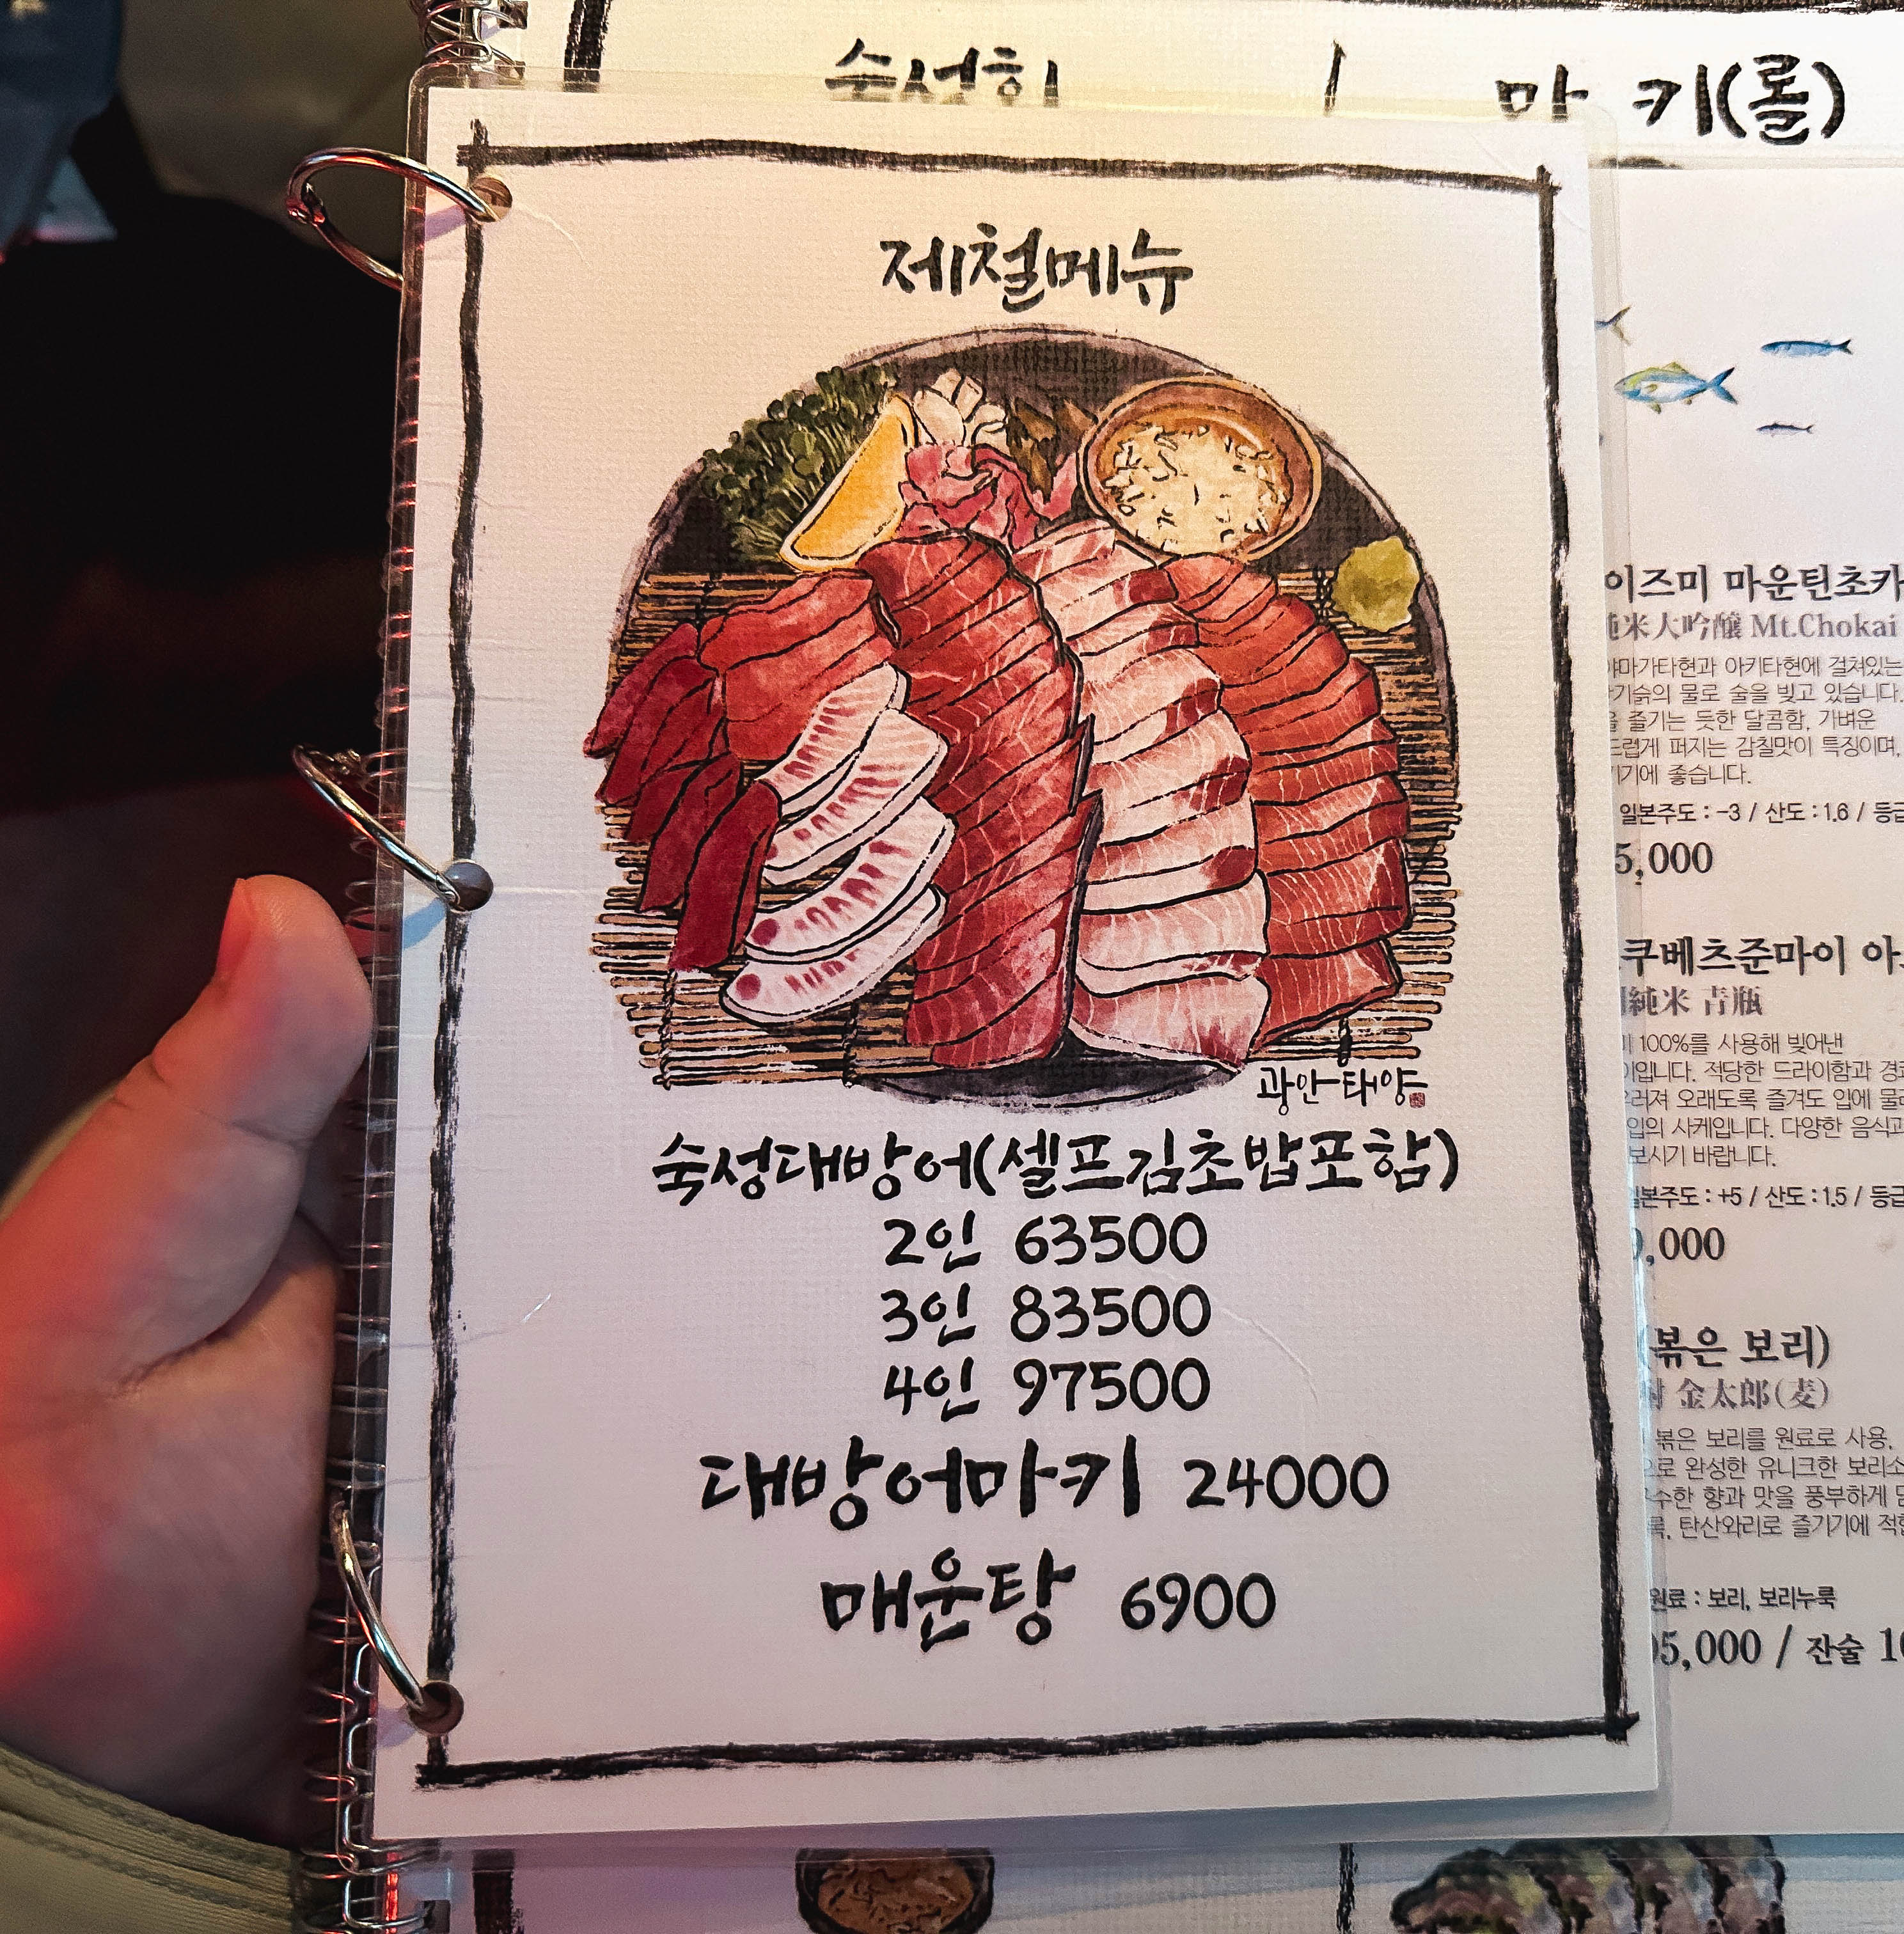 숙성회 / 마키(롤)
제철메뉴
광안태양
숙성대방어(셀프김초밥포함)
2인 63500
3인 83500
4인 97500
대방어마키 24000
매운탕 6900
이즈미 마운틴초카
米大吟醸 Mt.Chokai
야마가타현과 아키타현에 걸쳐있는
기슭의 물로 술을 빚고 있습니다.
즐기는 듯한 달콤함, 가벼운
드럽게 퍼지는 감칠맛이 특징이며,
기에 좋습니다.
일본주도 : -3 / 산도 : 1.6 / 등급
5,000
쿠베츠준마이 아
純米 青瓶
100%를 사용해 빚어낸
이입니다. 적당한 드라이함과 경쾌
러져 오래도록 즐겨도 입에 물
입의 사케입니다. 다양한 음식과
보시기 바랍니다.
일본주도 : +5 / 산도 : 1.5 / 등급
,000
(볶은 보리)
金太郎(麦)
볶은 보리를 원료로 사용,
로 완성한 유니크한 보리소
수한 향과 맛을 풍부하게
록, 탄산와리로 즐기기에 적합
원료 : 보리, 보리누룩
05,000 / 잔술 10